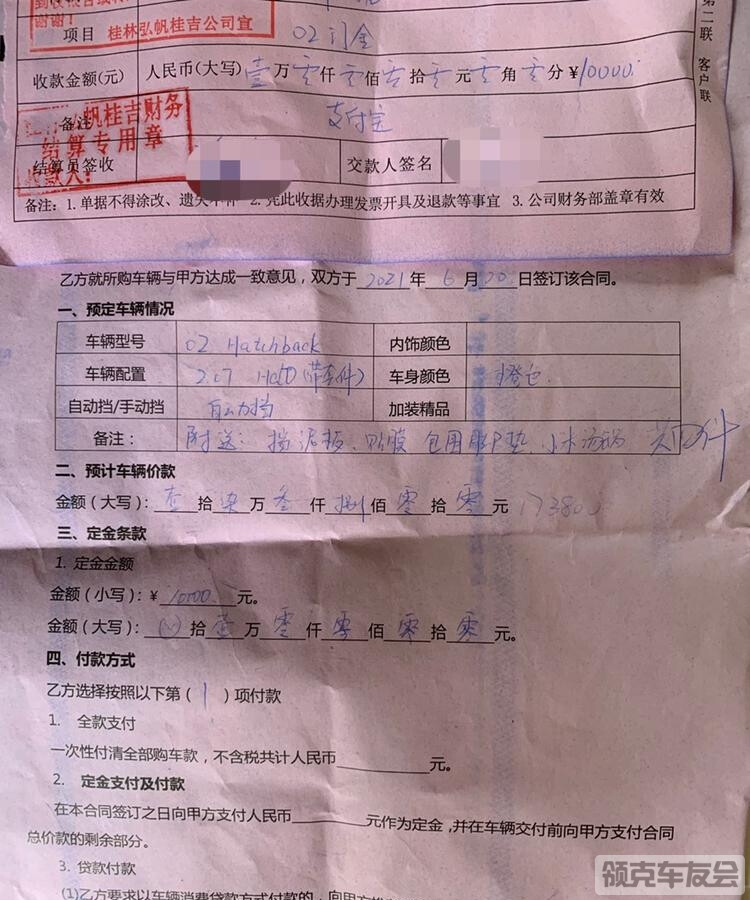 谢谢!
桂林弘帆桂吉公司宣
项目 02订金
第二联 客户联
收款金额(元) 人民币(大写) 壹万零仟零佰零拾零元零角零分¥10000.
帆桂吉财务
结算专用章
备注 支付宝
结算员签收 交款人签名
备注:1.单据不得涂改、遗失不补 2.凭此收据办理发票开具及退款等事宜 3.公司财务部盖章有效
乙方就所购车辆与甲方达成一致意见,双方于2021年6月20日签订该合同。
一、预定车辆情况
车辆型号 02 Hatchback 内饰颜色
车辆配置 2.0T Halo(带套件) 车身颜色 橙色
自动挡/手动挡 自动挡 加装精品
备注: 附送:挡泥板、贴膜 包围脚垫、
二、预计车辆价款
金额(大写):壹拾柒万叁仟捌佰零拾零元 173800
三、定金条款
1. 定金金额
金额(小写):¥ 10000 元。
金额(大写):拾壹万零仟零佰零拾零元。
四、付款方式
乙方选择按照以下第( 1 )项付款
1. 全款支付
一次性付清全部购车款,不含税共计人民币________元。
2. 定金支付及付款
在本合同签订之日向甲方支付人民币________元作为定金,并在车辆交付前向甲方支付合同
总价款的剩余部分。
3. 贷款付款
(1)乙方要求以车辆消费贷款方式付款的,向甲方
领克车友会